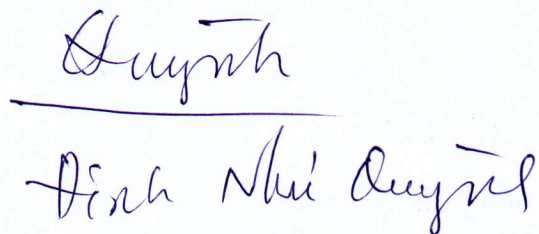 Quỳnh
Đinh Như Quỳnh